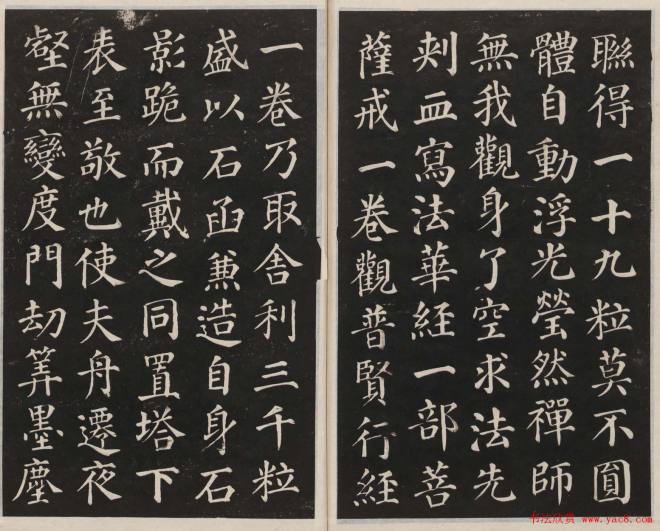 聯得一十九粒莫不圓
體自動浮光瑩然禪師
無我觀身了空求法先
刾血寫法華經一部菩
薩戒一卷觀普賢行經
一卷乃取舍利三千粒
盛以石函兼造自身石
影跪而戴之同置塔下
表至敬也使夫舟遷夜
壑無變度門劫筭墨塵
书法欣赏 www.yac8.com